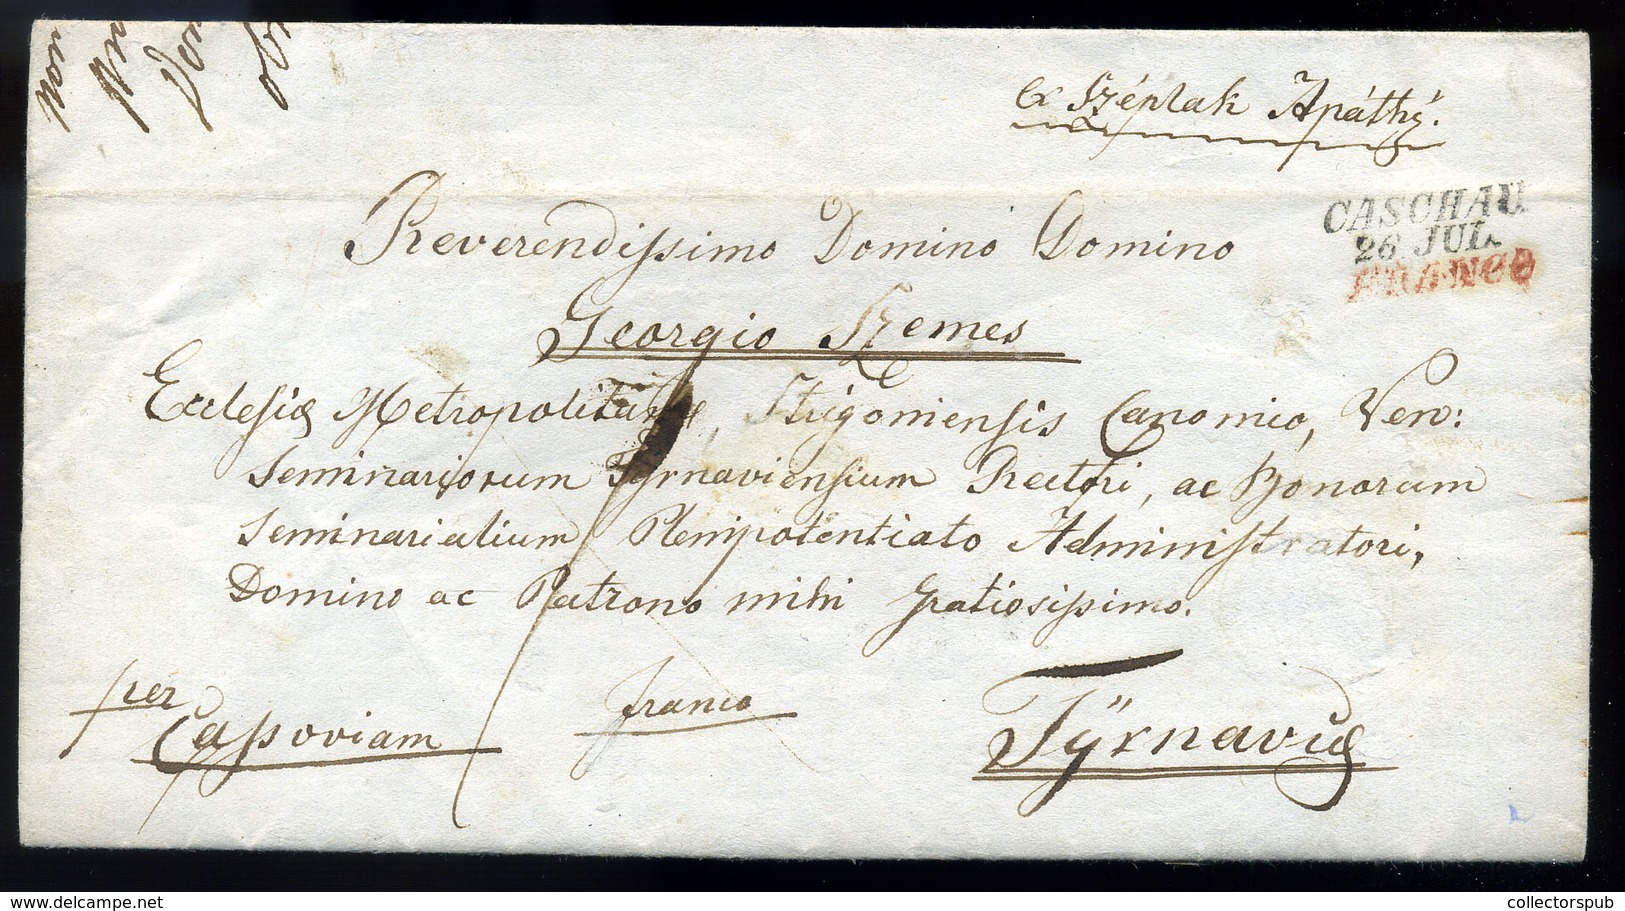 ex Széplak Apáthÿ.
CASCHAU
26 JUL.
FRANCO
Reverendissimo Domino Domino
Georgio Szemes
Ecclesiæ Metropolitanæ, Strigoniensis Canonico, Ven:
Seminariorum Tyrnaviensium Rectori, ac Bonorum
Seminarialium Plenipotentiato Administratori,
Domino ac Patrono mihi Gratiosissimo.
per
Cassoviam
franco
Tÿrnaviæ
collectorspub